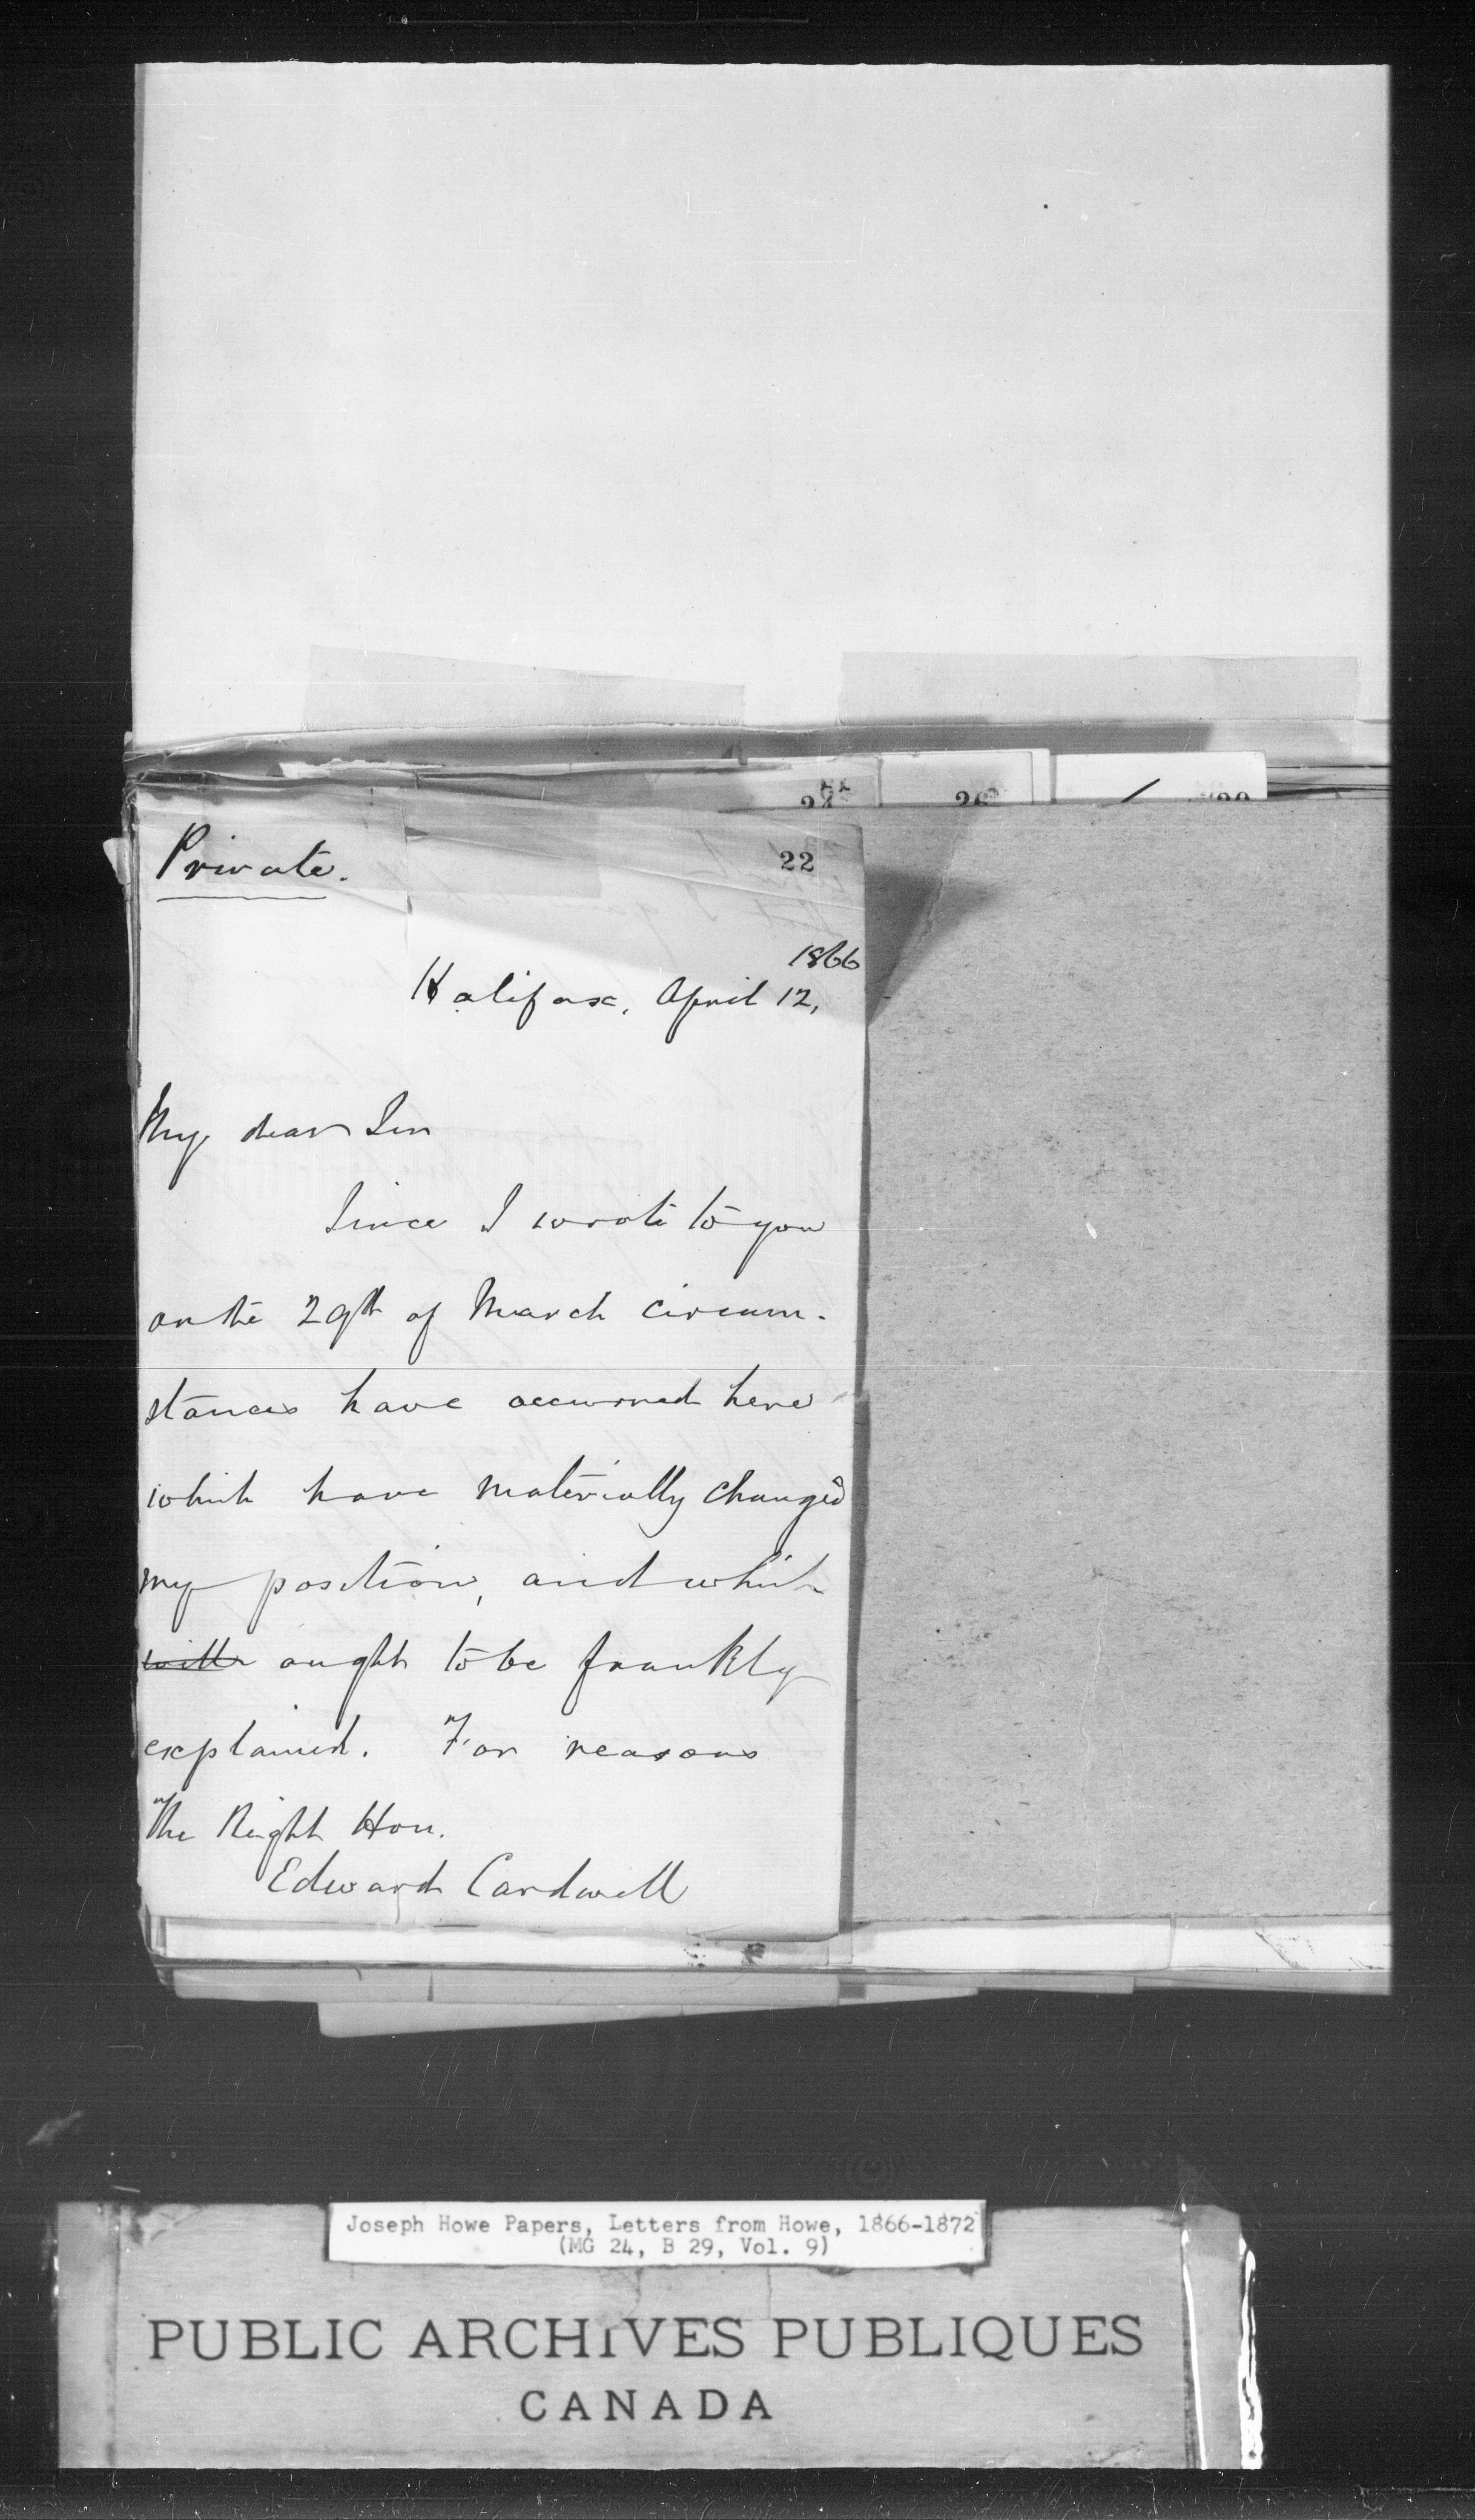 Private.
22
1866
Halifax, April 12,
My dear Sir
Since I wrote to you
on the 29th of March circum-
stances have occurred here
which have materially changed
my position, and which
will ought to be frankly
explained. For reasons
The Right Hon.
Edward Cardwell
Joseph Howe Papers, Letters from Howe, 1866-1872
(MG 24, B 29, Vol. 9)
PUBLIC ARCHIVES PUBLIQUES
CANADA